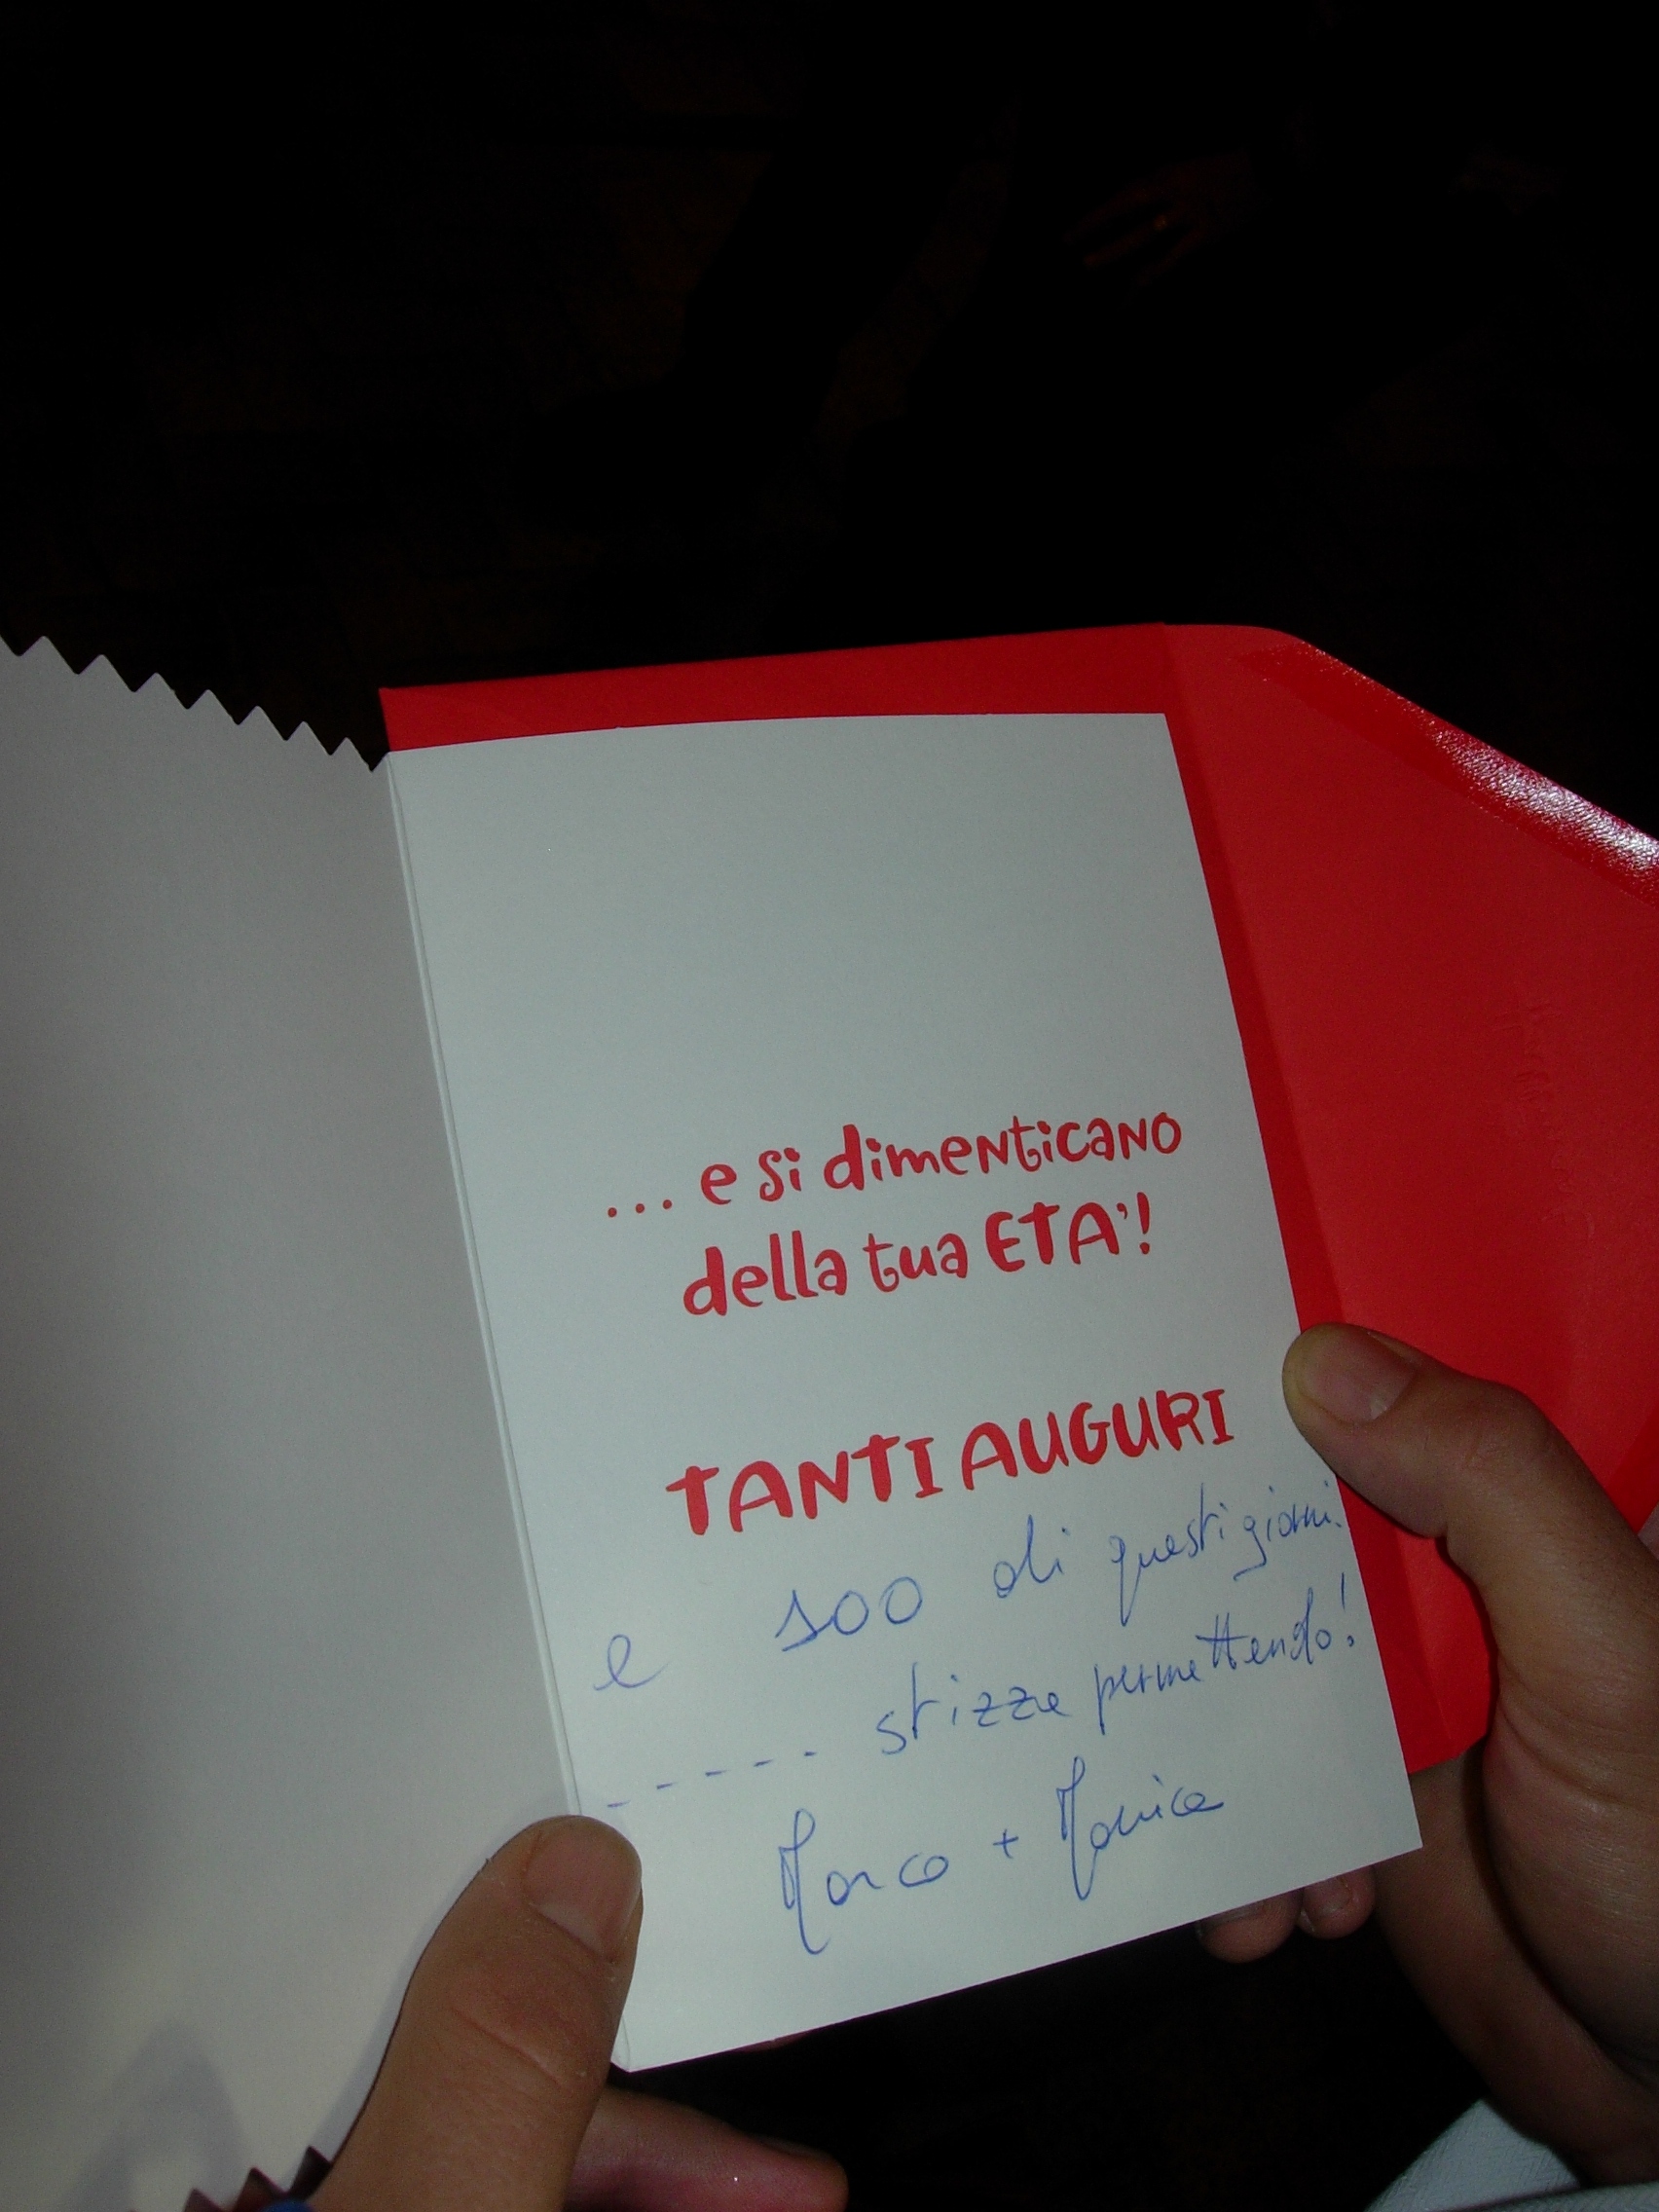 ... e si dimenticano
della tua ETA'!
TANTI AUGURI
e 100 di questi giorni.
----- stizze permettendo!
Marco + Monica